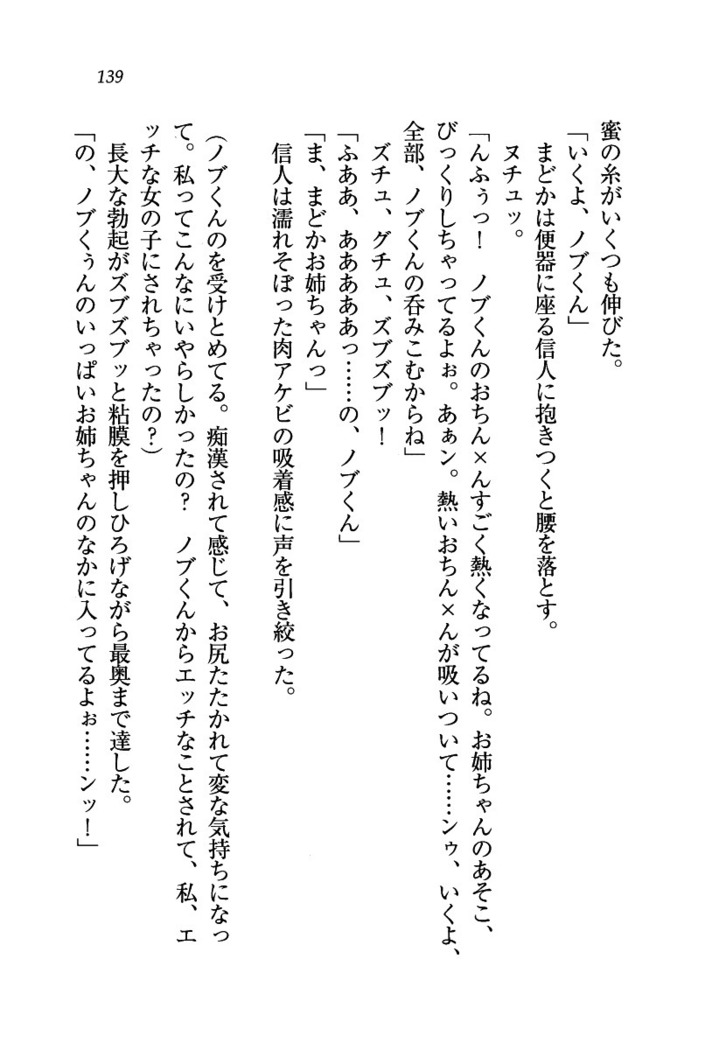 139
蜜の糸がいくつも伸びた。
「いくよ、ノブくん」
まどかは便器に座る信人に抱きつくと腰を落とす。
ヌチュッ。
「んふぅっ！　ノブくんのおちん×んすごく熱くなってるね。お姉ちゃんのあそこ、
びっくりしちゃってるよぉ。あぁン。熱いおちん×んが吸いついて……ンゥ、いくよ、
全部、ノブくんの呑みこむからね」
ズチュ、グチュ、ズブズブッ！
「ふああ、あああああっ……の、ノブくん」
「ま、まどかお姉ちゃんっ」
信人は濡れそぼった肉アケビの吸着感に声を引き絞った。
（ノブくんのを受けとめてる。痴漢されて感じて、お尻たたかれて変な気持ちになっ
て。私ってこんなにいやらしかったの？　ノブくんからエッチなことされて、私、エ
ッチな女の子にされちゃったの？）
長大な勃起がズブズブッと粘膜を押しひろげながら最奥まで達した。
「の、ノブくぅんのいっぱいお姉ちゃんのなかに入ってるよぉ……ンッ！」